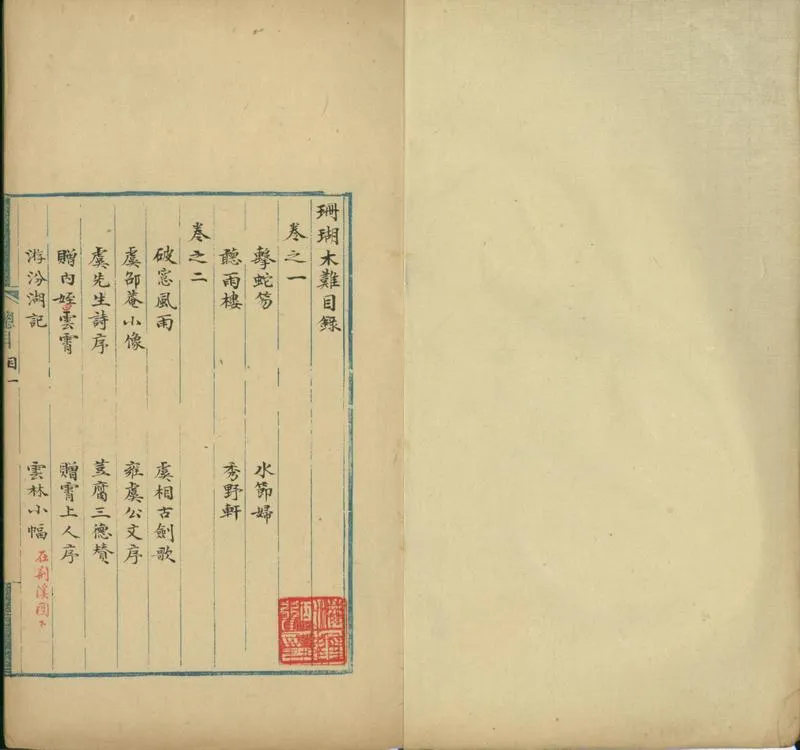 珊瑚木難目錄
卷之一
擊蛇笏 水節婦
聽雨樓 秀野軒
卷之二
破窓風雨 虞相古劍歌
虞邵菴小像 雍虞公文序
虞先生詩序 荳腐三德賛
贈內姪雲霄 贈霄上人序
游汾湖記 雲林小幅 在荆溪圖下
目一